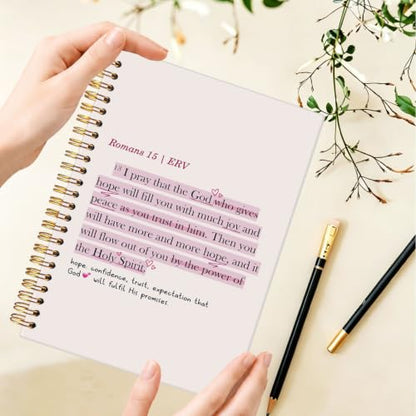 Romans 15 | ERV
13 I pray that the God who gives
hope will fill you with much joy and
peace as you trust in him. Then you
will have more and more hope, and it
will flow out of you by the power of
the Holy Spirit.
hope: confidence, trust, expectation that
God will fulfil His promises